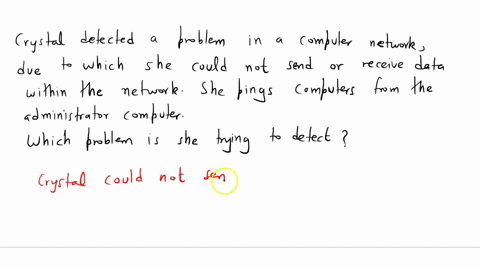 Crystal detected a problem in a computer network,
due to which she could not send or receive data
within the network. She pings computers from the
administrator computer.
Which problem is she trying to detect?
Crystal could not sen